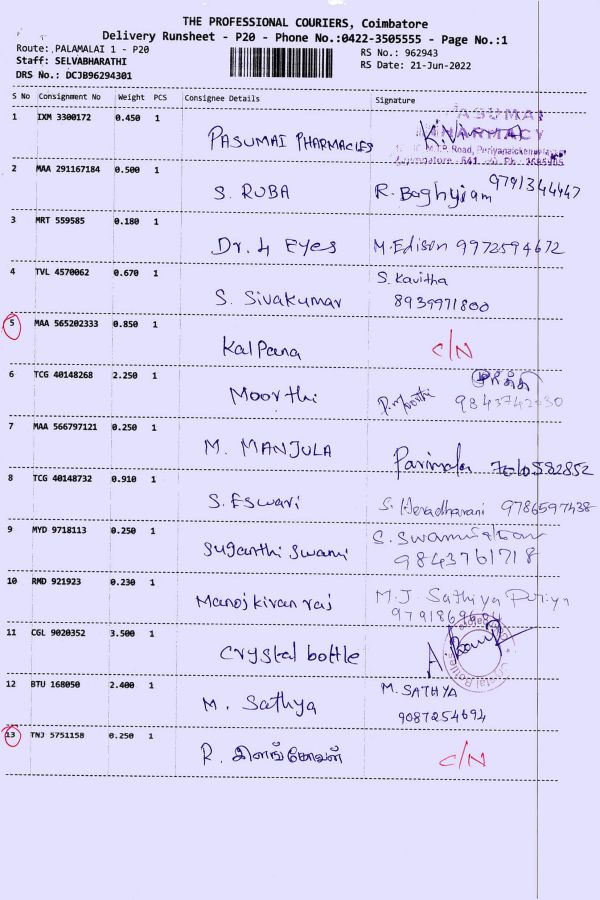 THE PROFESSIONAL COURIERS, Coimbatore
Delivery Runsheet - P20 - Phone No.:0422-3505555 - Page No.:1
Route: PALAMALAI 1 - P20
RS No.: 962943
Staff: SELVABHARATHI
RS Date: 21-Jun-2022
DRS No.: DCJB96294301
S No Consignment No Weight PCS Consignee Details Signature
1 IXM 3300172 0.450 1 PASUMAI PHARMACIES
2 MAA 291167184 0.500 1 S. RUBA R. Baghyiam 9791344447
3 MRT 559585 0.180 1 Dr. 4 Eyes M. Edison 9972594672
4 TVL 4570062 0.670 1 S. Sivakumar S. Kavitha
8939971800
5 MAA 565202333 0.850 1 Kalpana C/N
6 TCG 40148268 2.250 1 Moorthi P. Moorthi
7 MAA 566797121 0.250 1 M. MANJULA Parimala
8 TCG 40148732 0.910 1 S. Eswari 9786597438
9 MYD 9718113 0.250 1 Suganthi Swami
9843761718
10 RMD 921923 0.230 1 Manoj kiran raj M.J. Sathiya Priya
11 CGL 9020352 3.500 1 Crystal bottle
12 BTU 168050 2.400 1 M. Sathya M. SATHYA
9087254694
13 TNJ 5751158 0.250 1 R. இளங்கோவன் C/N